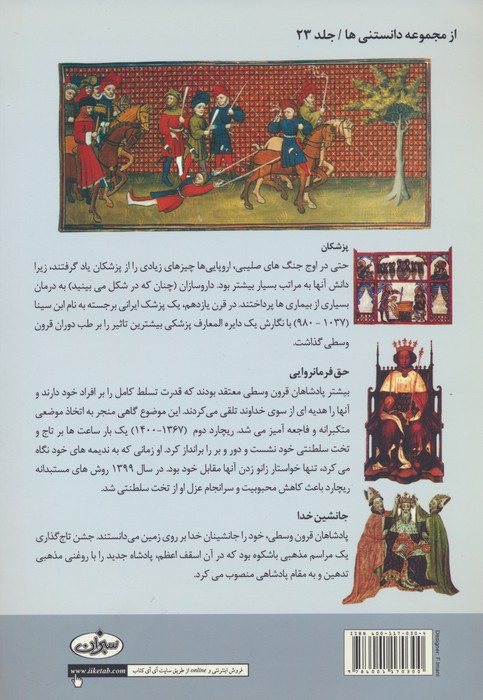 از مجموعه دانستنی ها / جلد ۲۳
پزشکان
حتی در اوج جنگ های صلیبی، اروپایی‌ها چیزهای زیادی را از پزشکان یاد گرفتند، زیرا
دانش آنها به مراتب بسیار بیشتر بود. داروسازان (چنان که در شکل می بینید) به درمان
بسیاری از بیماری ها پرداختند. در قرن یازدهم، یک پزشک ایرانی برجسته به نام ابن سینا
(۱۰۳۷ - ۹۸۰) با نگارش یک دایره المعارف پزشکی بیشترین تاثیر را بر طب دوران قرون
وسطی گذاشت.
حق فرمانروایی
بیشتر پادشاهان قرون وسطی معتقد بودند که قدرت تسلط کامل را بر افراد خود دارند و
آنها را هدیه ای از سوی خداوند تلقی می‌کردند. این موضوع گاهی منجر به اتخاذ موضعی
متکبرانه و فاجعه آمیز می شد. ریچارد دوم (۱۳۶۷-۱۴۰۰) یک بار ساعت ها بر تاج و
تخت سلطنتی خود نشست و دور و بر را برانداز کرد. او زمانی که به ندیمه های خود نگاه
می کرد، تنها خواستار زانو زدن آنها مقابل خود بود. در سال ۱۳۹۹ روش های مستبدانه
ریچارد باعث کاهش محبوبیت و سرانجام عزل او از تخت سلطنتی شد.
جانشین خدا
پادشاهان قرون وسطی، خود را جانشینان خدا بر روی زمین می‌دانستند. جشن تاج‌گذاری
یک مراسم مذهبی باشکوه بود که در آن اسقف اعظم، پادشاه جدید را با روغنی مذهبی
تدهین و به مقام پادشاهی منصوب می کرد.
سبزان
فروش اینترنتی و online از طریق سایت آی آی کتاب
www.iiketab.com
ISBN 600-117-030-4
9 786001 170300
Designer: F Imani